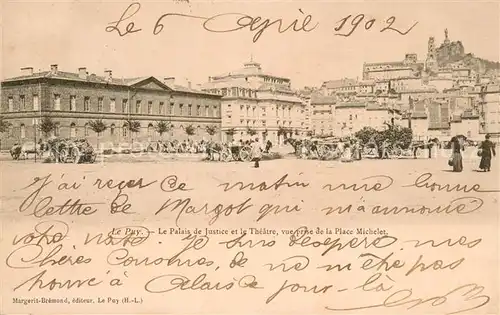 Le 6 Avril 1902
J'ai reçu ce matin une bonne
lettre de Margot qui m'annonce
Le Puy. — Le Palais de Justice et le Théâtre, vue prise de la Place Michelet.
votre Je suis désespéré mes
chères Cousines, de ne m'être pas
trouvé à Calais ce jour-là
Margerit-Brémond, éditeur, Le Puy (H.-L.)